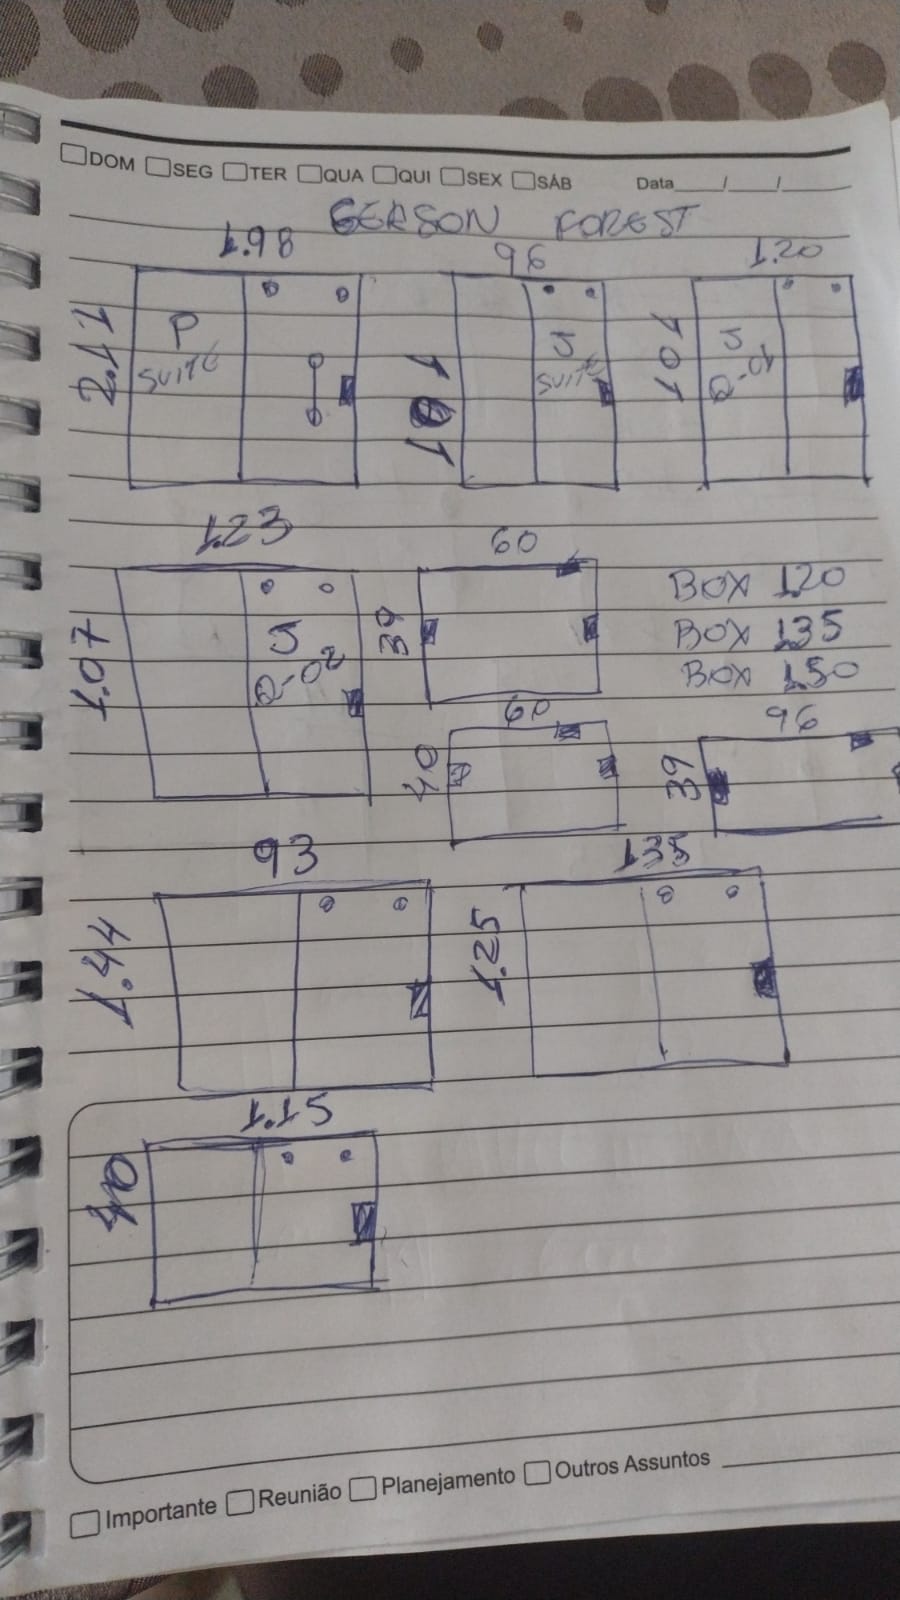 DOM SEG TER QUA QUI SEX SÁB Data ___/___/___
GERSON FOREST
1.98 96 1.20
2.11 P SUITE
101 J SUITE
101 J Q-01
1.23 60
1.07 J Q-02
39
BOX 120
BOX 135
BOX 150
60 96
40 39
93 135
1.44 1.25
1.15
40
Importante Reunião Planejamento Outros Assuntos